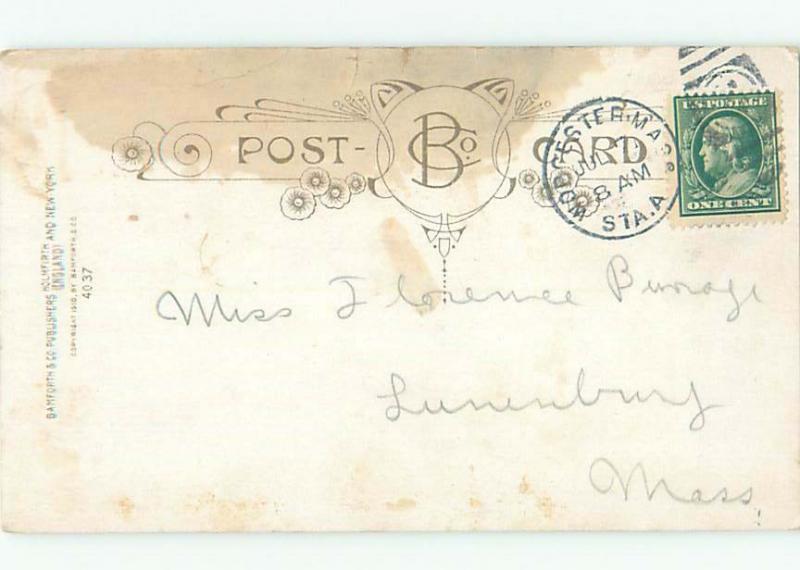 POST- B Co. CARD
WORCESTER, MASS.
JUL
8 AM
STA. A
U.S. POSTAGE
ONE CENT
BAMFORTH & CO. PUBLISHERS HOLMFIRTH AND NEW YORK
(ENGLAND)
COPYRIGHT 1910, BY BAMFORTH & CO.
4037
Miss Florence Burrage
Lunenburg
Mass.